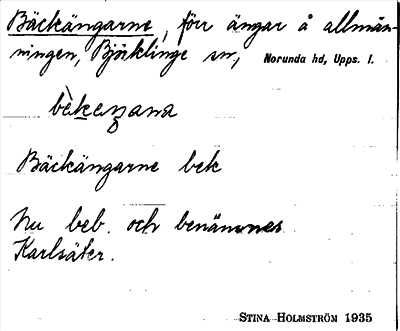 Bäckängarne, förr ängar å allmän-
ningen, Bjöklinge sn, Norunda hd, Upps. l.
Bäckängarne bek
Nu beb. och benämnes
Karlsäter.
STINA HOLMSTRÖM 1935